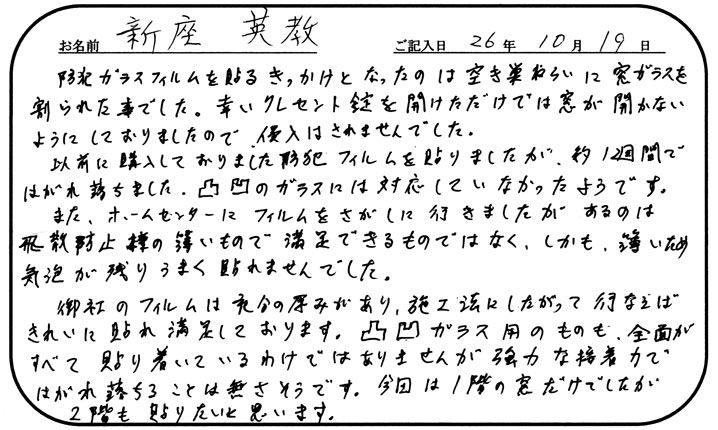 お名前 新座 英教 ご記入日 26年 10月 19日
防犯ガラスフィルムを貼るきっかけとなったのは空き巣ねらいに窓ガラスを
割られた事でした。幸いクレセント錠を開けただけでは窓が開かない
ようにしておりましたので、侵入はされませんでした。
以前に購入しておりました防犯フィルムを貼りましたが、約1週間で
はがれ落ちました。凸凹のガラスには対応していなかったようです。
また、ホームセンターにフィルムをさがしに行きましたがあるのは
飛散防止様の薄いもので満足できるものではなく、しかも、薄いため
気泡が残りうまく貼れませんでした。
御社のフィルムは充分の厚みがあり、施工法にしたがって行なえば
きれいに貼れ満足しております。凸凹ガラス用のものも、全面が
すべて貼り着いているわけではありませんが強力な接着力で
はがれ落ちることは無さそうです。今回は1階の窓だけでしたが
2階も貼りたいと思います。